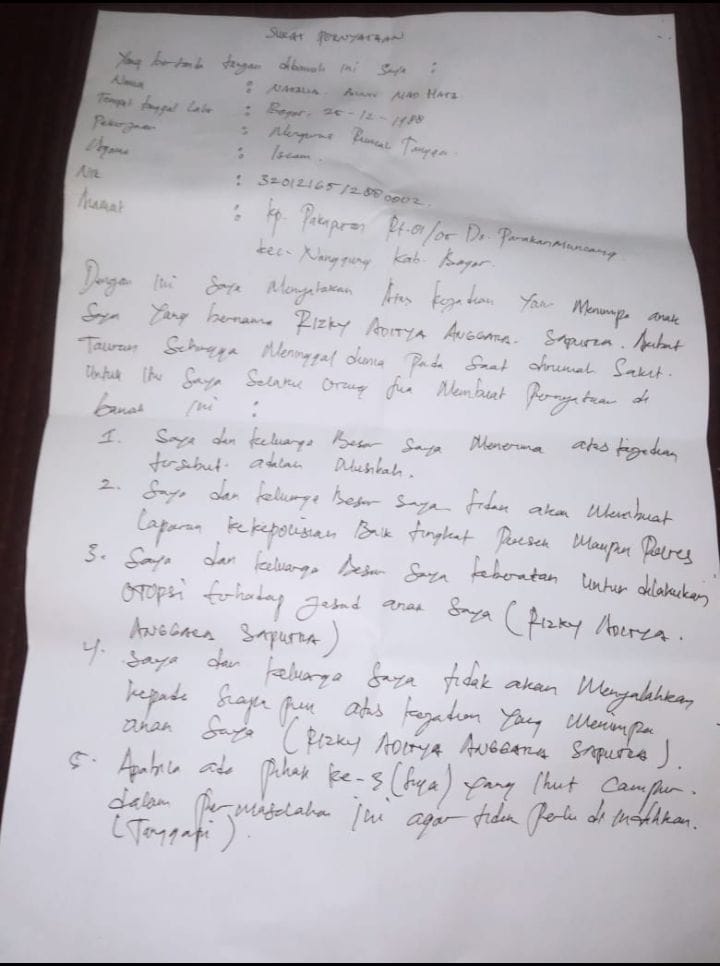 SURAT PERNYATAAN
Yang bertanda tangan dibawah ini Saya :
Nama :
Tempat tanggal Lahir : Bogor, 25-12-1988
Pekerjaan : Mengurus Rumah Tangga.
Agama : Islam.
NIK : 3201216512880002.
Alamat : Kp. Pakapuran Rt.01/05 Ds. Parakanmuncang
kec- Nanggung kab. Bogor.
Dengan ini Saya Menyatakan Atas kejadian Yan Menimpa anak
Saya Yang bernama RIZKY ADITYA ANGGARA. SAPUTRA. Akibat
Tauran Sehingga Meninggal dunia Pada Saat dirumah Sakit.
Untuk itu Saya Selaku Orang tua Membuat Pernyataan di
bawah ini :
1. Saya dan keluarga Besar Saya Menerima atas kejadian
tersebut. adalah Musibah.
2. Saya dan keluarga Besar saya tidak akan Membuat
Laporan kekepolisian Baik tingkat Polsek Maupun Polres
3. Saya dan keluarga Besar Saya keberatan Untuk dilakukan
OTOPSI terhadap Jasad anak Saya (RIZKY ADITYA.
ANGGARA SAPUTRA)
4. Saya dan keluarga Saya tidak akan Menyalahkan
kepada Siapa pun atas kejadian Yang Menimpa
anak Saya (RIZKY ADITYA ANGGARA SAPUTRA).
5. Apabila ada Pihak ke-3 (tiga) Yang Ikut Campur.
dalam Permasalahan Ini agar tidak Perlu di
(Tanggapi).